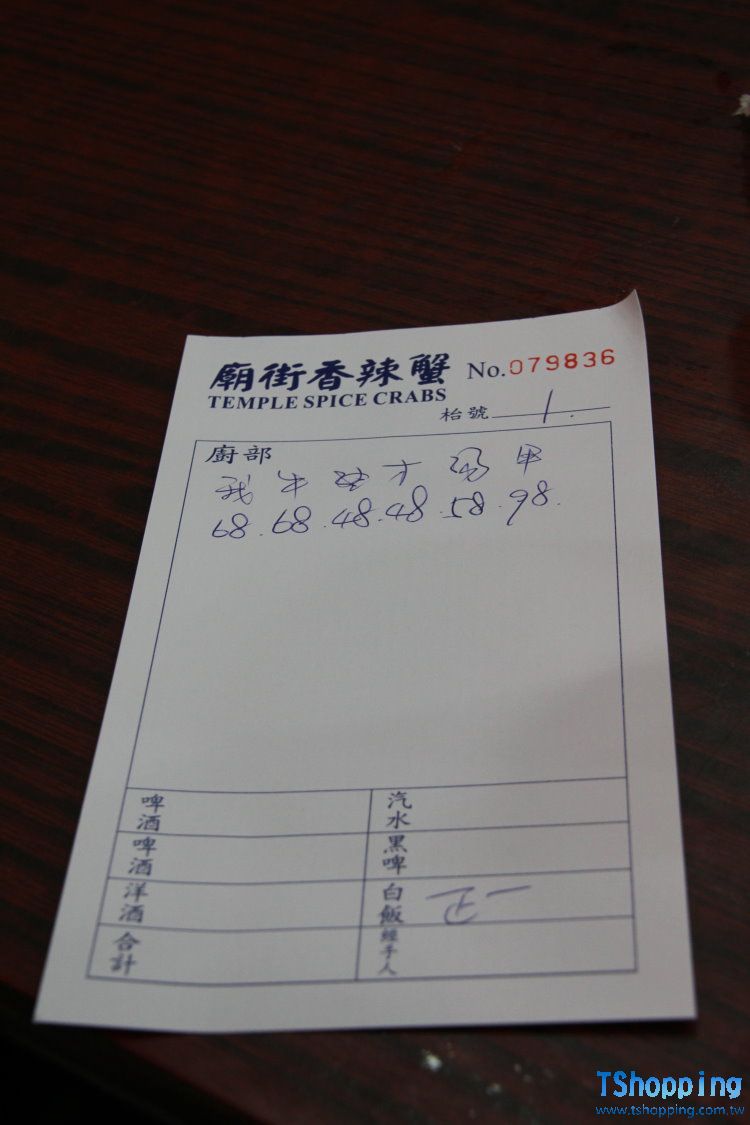 廟街香辣蟹 No.079836
TEMPLE SPICE CRABS
枱號 1.
廚部
68.68.48.48.58.98.
啤酒 汽水
啤酒 黑啤
洋酒 白飯 正一
合計 經手人
TShopping
www.tshopping.com.tw